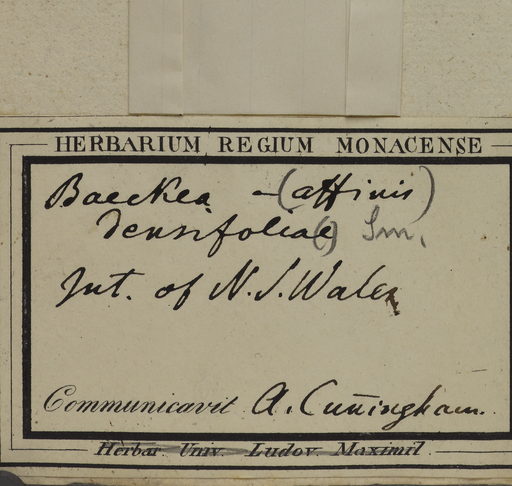 HERBARIUM REGIUM MONACENSE
Baeckea - (affinis)
densifoliae() Sm.
Int. of N. S. Wales
Communicavit A. Cuñingham.
Herbar. Univ. Ludov. Maximil.